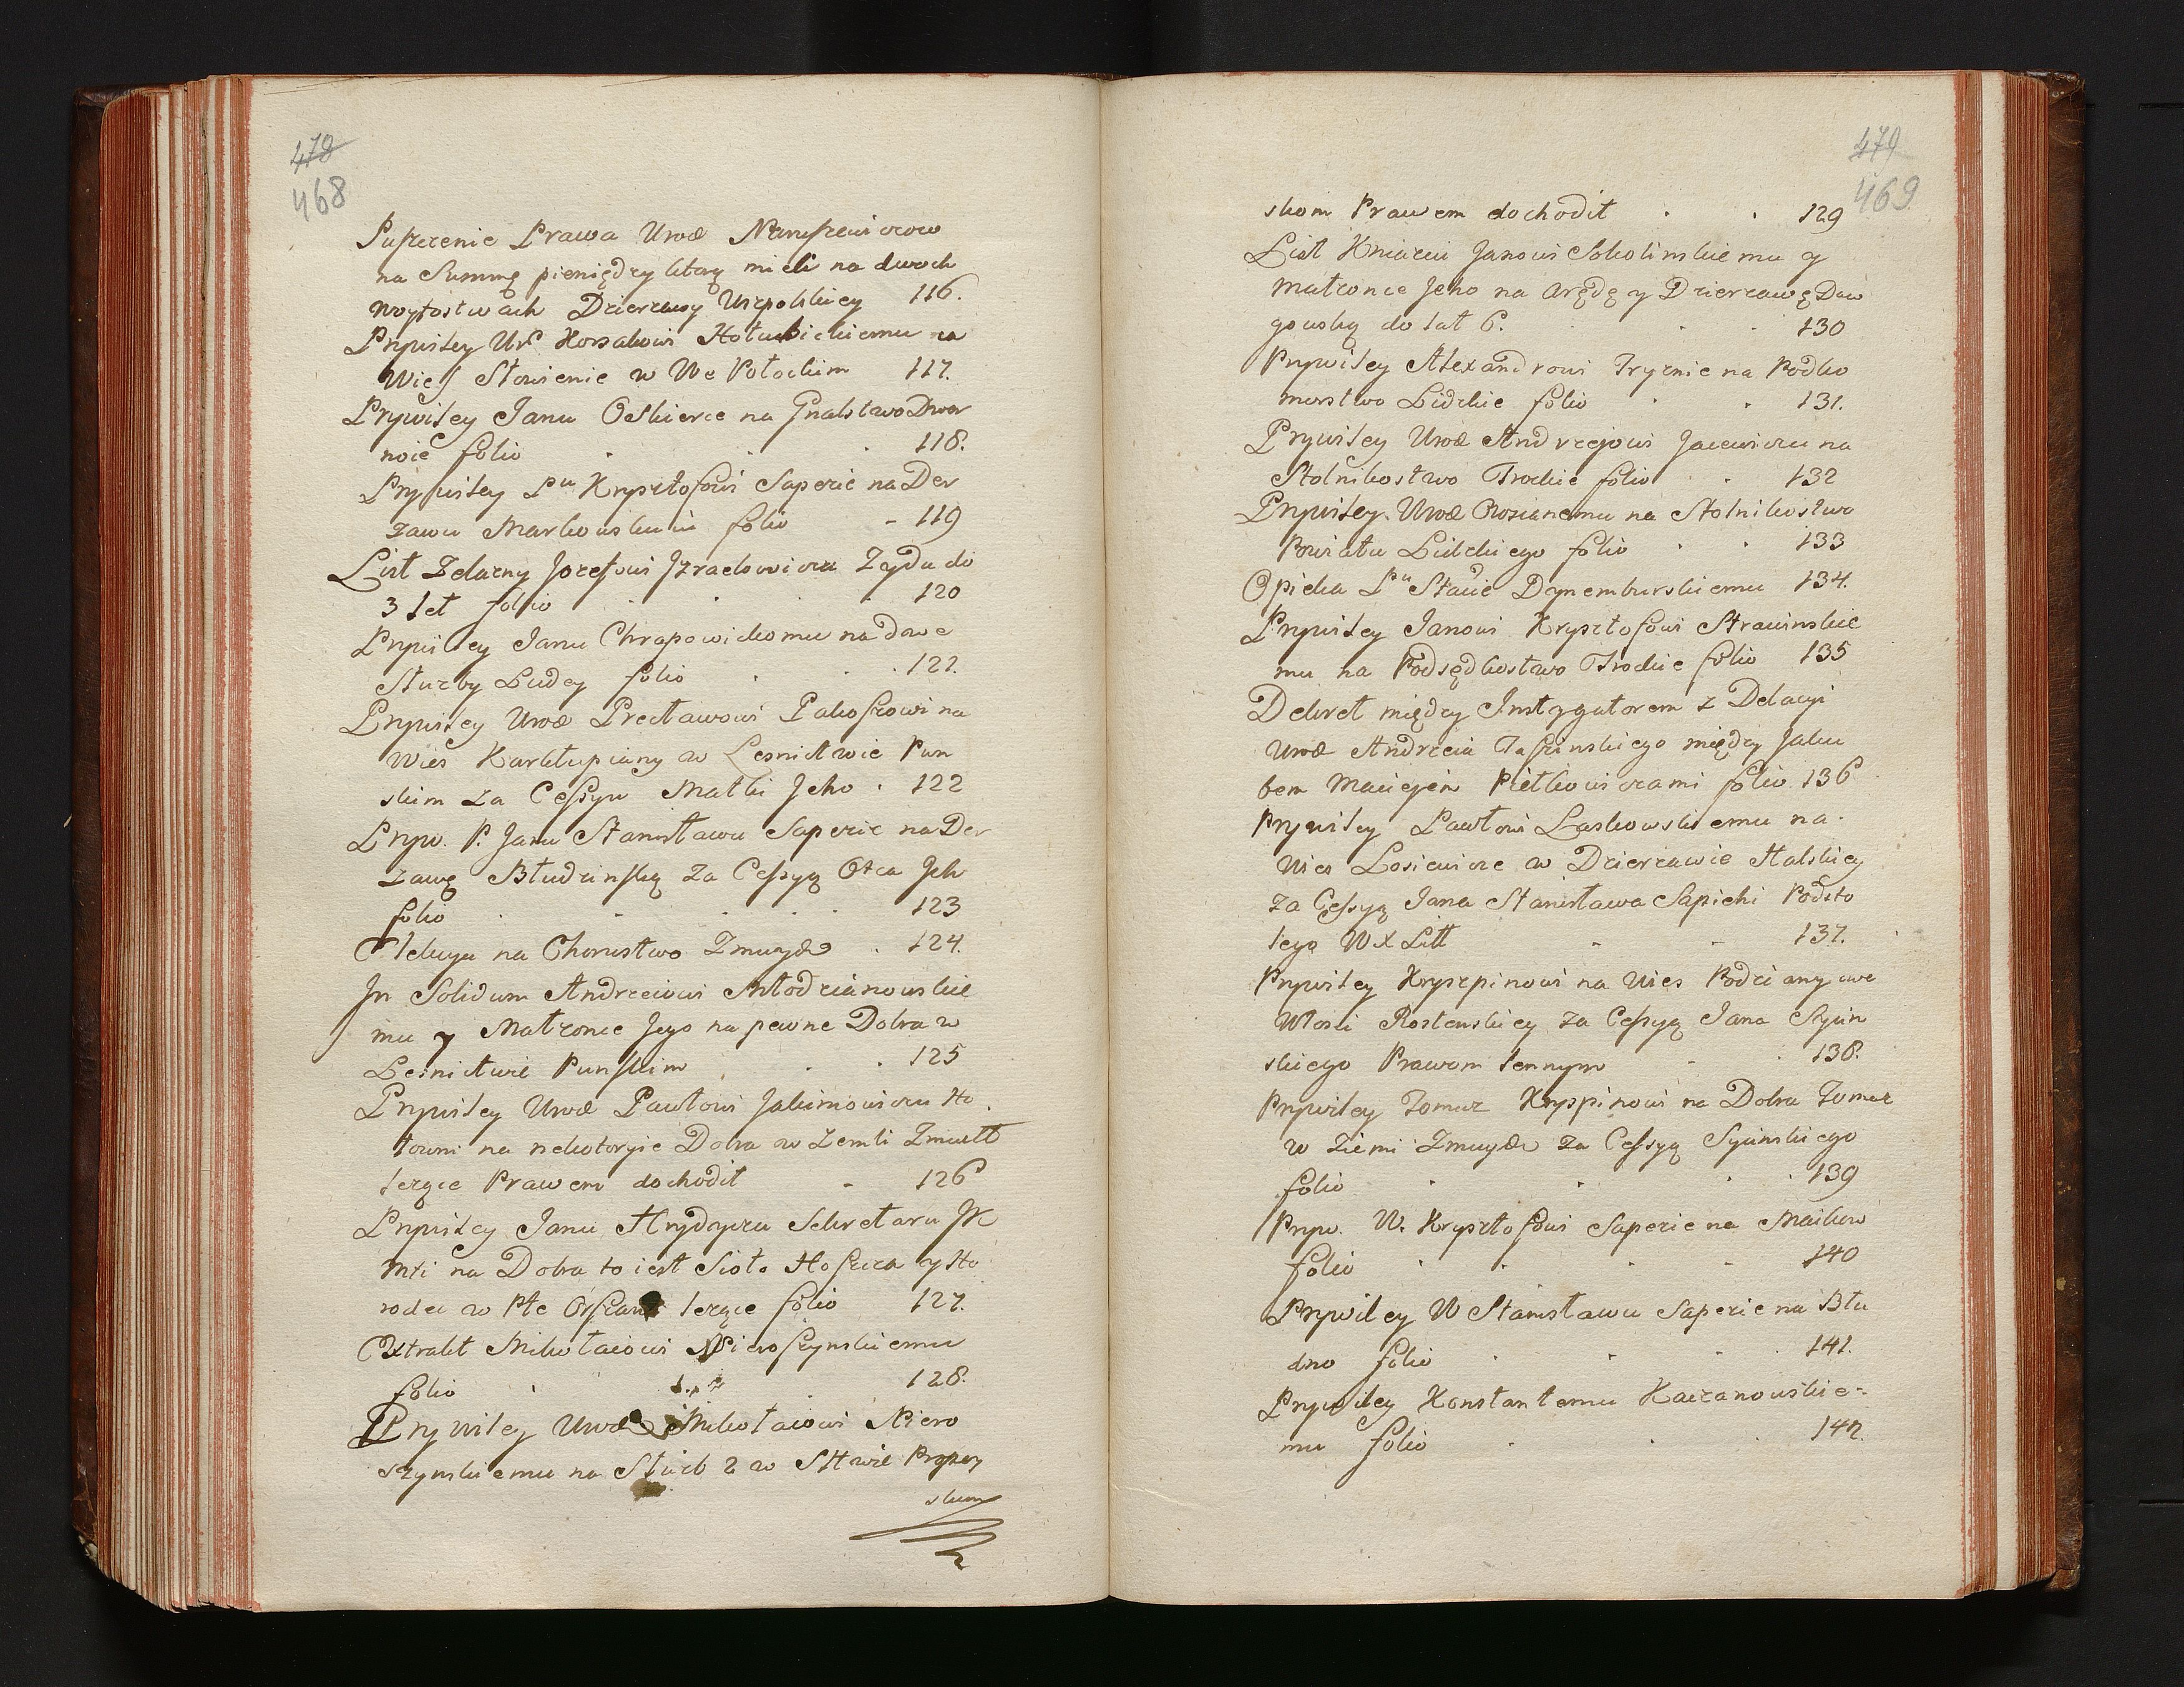 478
468
Puszczenie Prawa Urod Naruszewiczow
na Summę pieniędzy ktorą mieli na dwoch
woytostwach Dzierzawy Uszpolskiey 116.
Prywiley Ur Korsakowi Hołubickiemu na
Wieś Słowienie w We Połockim 117.
Prywiley Janu Oskierce na Gnalstwo Dwor
noie folio 118.
Prywiley Pu Krysztofowi Sapezie na Der
zawu Markowskuiu folio - 119
List Zelazny Jozefowi Jzraelowiczu Zydu do
3 let folio 120
Prywiley Janu Chrapowickomu na dwe
Służby Ludey folio 121.
Prywiley Urod Precławowi Pakoszowi na
Wies Karklupiany w Lesnictwie Pun
skim za Cessyu Matki Jeho 122
Pryw. P. Janu Stanisławu Sapezie na Der
zawę Błudzinską za Cessyą Otca Jeh
folio 123
Elekcya na Chorustwo Zmuydz 124.
Jn Solidum Andrzeiowi Młodzianowskie
mu y Małzonce Jego na pewne Dobra w
Lesnictwie Punskim 125
Prywiley Urod Pawłowi Jakimowiczu Ho
łowni na nekotoryie Dobra w Zemli Zmudz
lezące Prawem dochodit - 126
Prywiley Janu Hrydziczu Sekretaru JK
Mti na Dobra to iest Sioło Hoszcza y Ho
rodec w Pte Orszans lezące folio 127.
Extrakt Mikołaiowi Nieroszynskiemu
folio 128.
Prywiley Urod Mikołaiowi Niero
szynskiemu na Służb 2 w Sttwie Propoy
skom
479
469
skom Prawem dochodit 129
List Kniaziu Janowi Sokolinskiemu y
Małzonce Jeho na Arędę y Dzierzawę Daw
gowską do lat 6. 130
Prywiley Alexandrowi Tryznie na Podko
morstwo Lidzkie folio 131.
Prywiley Urod Andrzejowi Jacewiczu na
Stolnikostwo Trockie folio 132
Prywiley Urod Rosianemu na Stolnikostwo
Powiatu Lidzkiego folio 133
Opieka Pu Staście Dynemburskiemu 134.
Prywiley Janowi Krysztofowi Strawinskie
mu na Podsędkostwo Trockie folio 135
Dekret między Jnstygatorem z Delacyi
Urod Andrzeia Jasinskiego między Jaku
bem Maciejem Pietkowiczami folio 136
Prywiley Pawłowi Laskowskiemu na
Wies Losiewicze w Dzierzawie Stalskiey
za Cessyą Jana Stanisława Sapiehi Podsto
lego W X Litt - - 137.
Prywiley Kryszpinowi na Wies Podziany we
Włosci Rostenskiey za Cessyą Jana Syrin
skiego Prawom lennym - 138.
Prywiley Tomasz Kryspinowi na Dobra Tomasz
w Ziemi Zmuydz za Cessyą Syrinskiego
folio 139
Pryw. W. Krysztofowi Sapezie na Maikow
folio 140
Prywiley W Stanisławu Sapezie na Błu
dno folio 141.
Prywiley Konstantemu Kaczanowskie-
mu folio 142